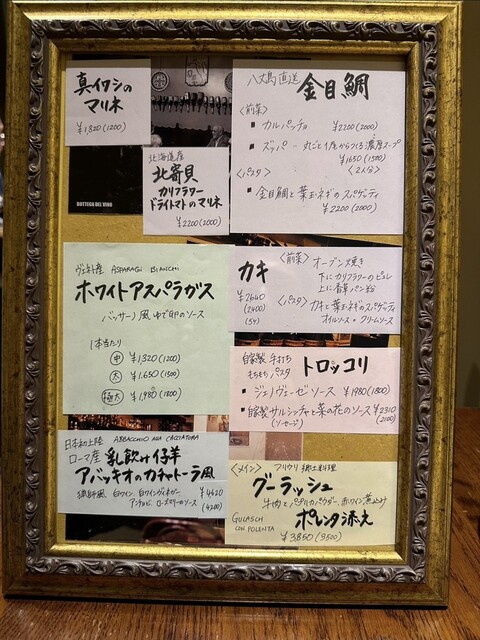 真イワシの
マリネ
¥1,320(1200)
BOTTEGA DEL VINO
北海道産
北寄貝
カリフラワー
ドライトマトのマリネ
¥2200(2000)
八丈島直送 金目鯛
〈前菜〉
▪ カルパッチョ ¥2200(2000)
▪ ズッパ - 丸ごと1尾からつくる濃厚スープ
¥1650(1500)
〈パスタ〉 (2人分)
▪ 金目鯛と葉玉ネギのスパゲッティ
¥2200(2000)
ヴェネト産 ASPARAGI BIANCHI
ホワイトアスパラガス
バッサーノ風 ゆで卵のソース
1本当たり
中 ¥1,320(1200)
太 ¥1,650(1500)
極太 ¥1,980(1800)
カキ
¥2640
(2400)
(5ヶ)
〈前菜〉 オーブン焼き
下にカリフラワーのピュレ
上に香草パン粉
〈パスタ〉 カキと葉玉ネギのスパゲッティ
オイルソース・クリームソース
自家製 手打ち
もちもちパスタ トロッコリ
▪ ジェノヴェーゼソース ¥1980(1800)
▪ 自家製サルシッチャと菜の花のソース ¥2310
(ソーセージ) (2100)
日本初上陸 ABBACCHIO ALLA CACCIATORA
ローマ産 乳飲み仔羊
アバッキオのカチャトーラ風
猟師風 白ワイン、白ワインヴィネガー ¥4620
アンチョビ、ローズマリーのソース (4200)
〈メイン〉 フリウリ郷土料理
グーラッシュ
牛肉とパプリカパウダー、赤ワイン煮込み
GULASCH
CON POLENTA
ポレンタ添え
¥3850(3500)